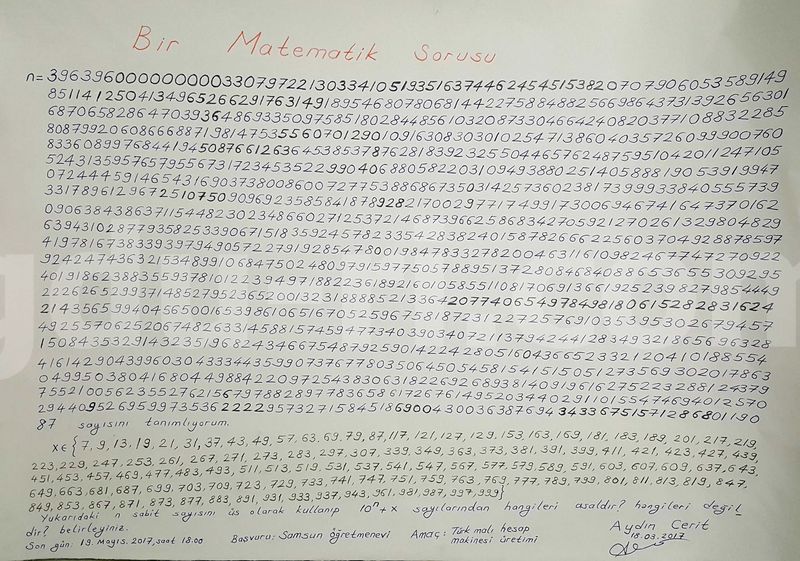 Bir Matematik Sorusu
n= 396396000000000033079722130334105193516374462454515382070790605358​9149
8511412504134965266291763149189546807806814422758848825669864373139265​6301
6870658286470393648693350975851802844856103208733046642408203771088​32285
8087992060866688719814753556070129010916308303010254713860403572609​9900760
8336089976844194508766126364538537876281839232550446576248759510420​11247105
5243135957657955673172345352299040688058220310949388025140588819053​919947
0724445914654316903738008600727753886867350314257360238173999338405​55739
3317896129672510750909692358584187892821700297717499173006946741647​370162
0906384386371154482302348660271253721468739662586834270592127026132​9804829
6394310287793582533906715183592457823354283824015878266622560370492​8878597
4197816738339397949057227919285478001984783327820046311610982467747​270922
9242474363215348991068475024809791597750578895137280846840886536553​09295
4019186238835593781012239497188223618921601058551108170691366192523​9827985​4449
2226265299371485279523652001323188885213364207740654978498180615282​831624
2143565994045650016539861065167052596758187231227257691035395302679​457
4925570625206748263314588157459477340390340721137942441283493218656​96328
1508435329143235196824346675487925901422428051604366523321204101885​54
4161429043996030433344359907376778035064505458154151505127356930201​7863
0499503804168044988422097254383063182269268938140919616275223288124​379
7552100562355276215679788289778365861726767149520344029110155474694​012570
2944095269599735362222957327158451869004300363876943433675157128680​1190
87 sayısını tanımlıyorum.
x∈{7,9,13,19,21,31,37,43,49,57,63,69,79,87,117,121,127,129,153,163,169,181,183,189,201,217,219,
223,229,247,253,261,267,271,273,283,297,307,339,349,363,373,381,391,399,411,421,423,427,439,
451,453,457,469,477,483,493,511,513,519,531,537,541,547,567,577,579,589,591,603,607,609,637,643,
649,663,681,687,699,703,709,723,729,733,741,747,751,759,763,769,777,789,799,801,811,813,819,847,
849,853,867,871,873,877,883,891,931,933,937,943,961,981,987,997,999}
Yukarıdaki n sabit sayısını üs olarak kullanıp 10ⁿ+x sayılarından hangileri asaldır? hangileri değil
dir? belirleyiniz.
Aydın Cerit
18.03.2017
Son gün: 19.Mayıs.2017,saat 18.00 Başvuru: Samsun öğretmenevi Amaç: Türk malı hesap
makinesi üretimi